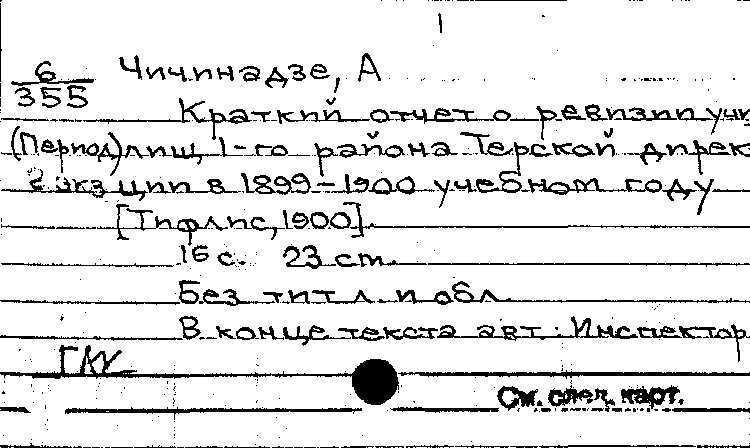 1
6 Чичинадзе, А
355
Краткий отчет о ревизии учи
(Период) лищ 1-го района Терской дирек
2 экз ции в 1899-1900 учебном году
[Тифлис, 1900].
16 с. 23 cm.
Без тит л. и обл.
В конце текста авт.: Инспектор
См. след. карт.